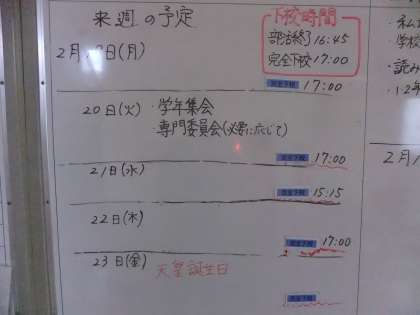 来週の予定
下校時間
部活終了16:45
完全下校17:00
2月 日(月)
完全下校 17:00
20日(火) ・学年集会
・専門委員会(必要に応じて)
完全下校 17:00
21日(水)
完全下校 15:15
22日(木)
完全下校 17:00
23日(金) 天皇誕生日
完全下校
学校
・読み
・12年
2月1